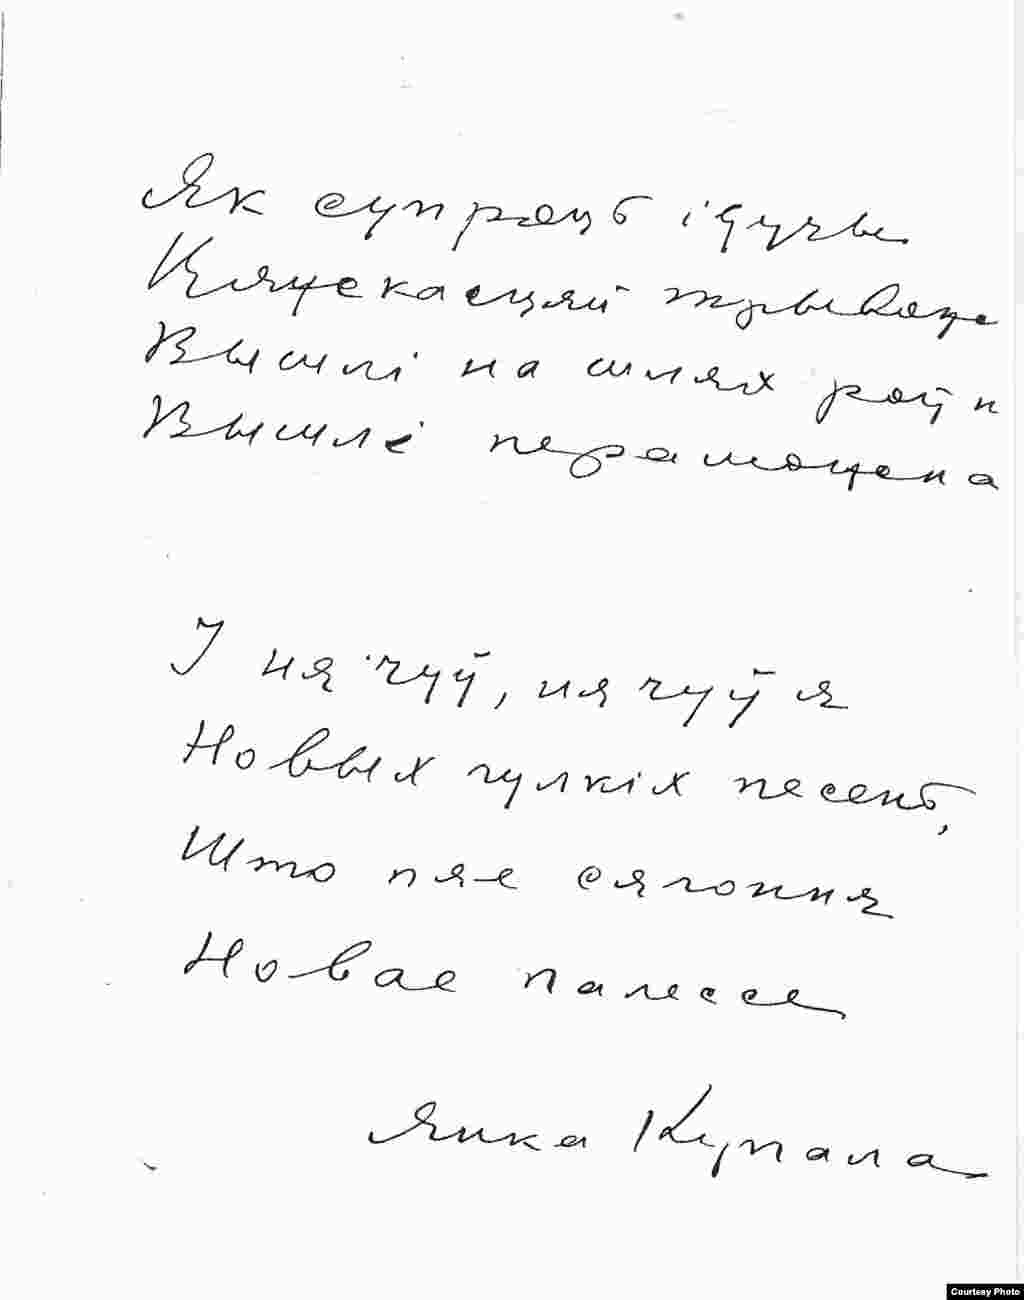 Як супроць ідучы
Цяжкасцяй трывоце
Вышлі на шлях роўн
Вышлі пераможна
І ня чуў, ня чуў я
Новых гулкіх песень,
Што пяе сягоння
Новае палессе
Янка Купала
Courtesy Photo